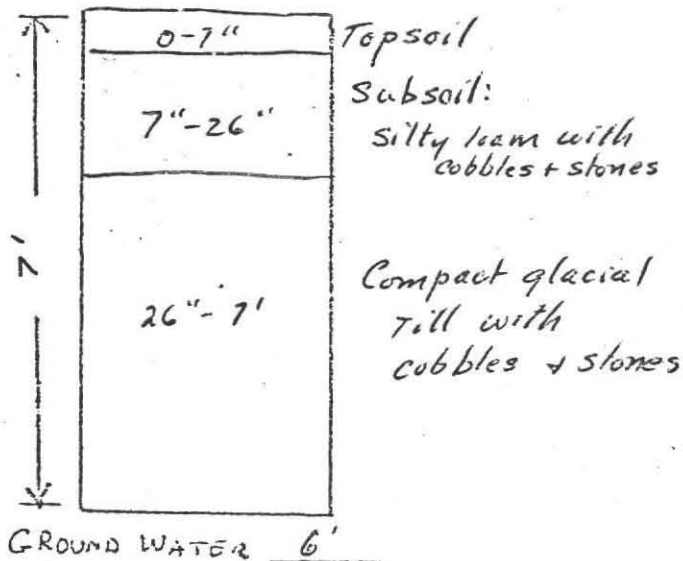 0-7" Topsoil
Subsoil:
7"-26" Silty loam with
cobbles + stones
7'
Compact glacial
26"-7' Till with
cobbles + stones
GROUND WATER 6'